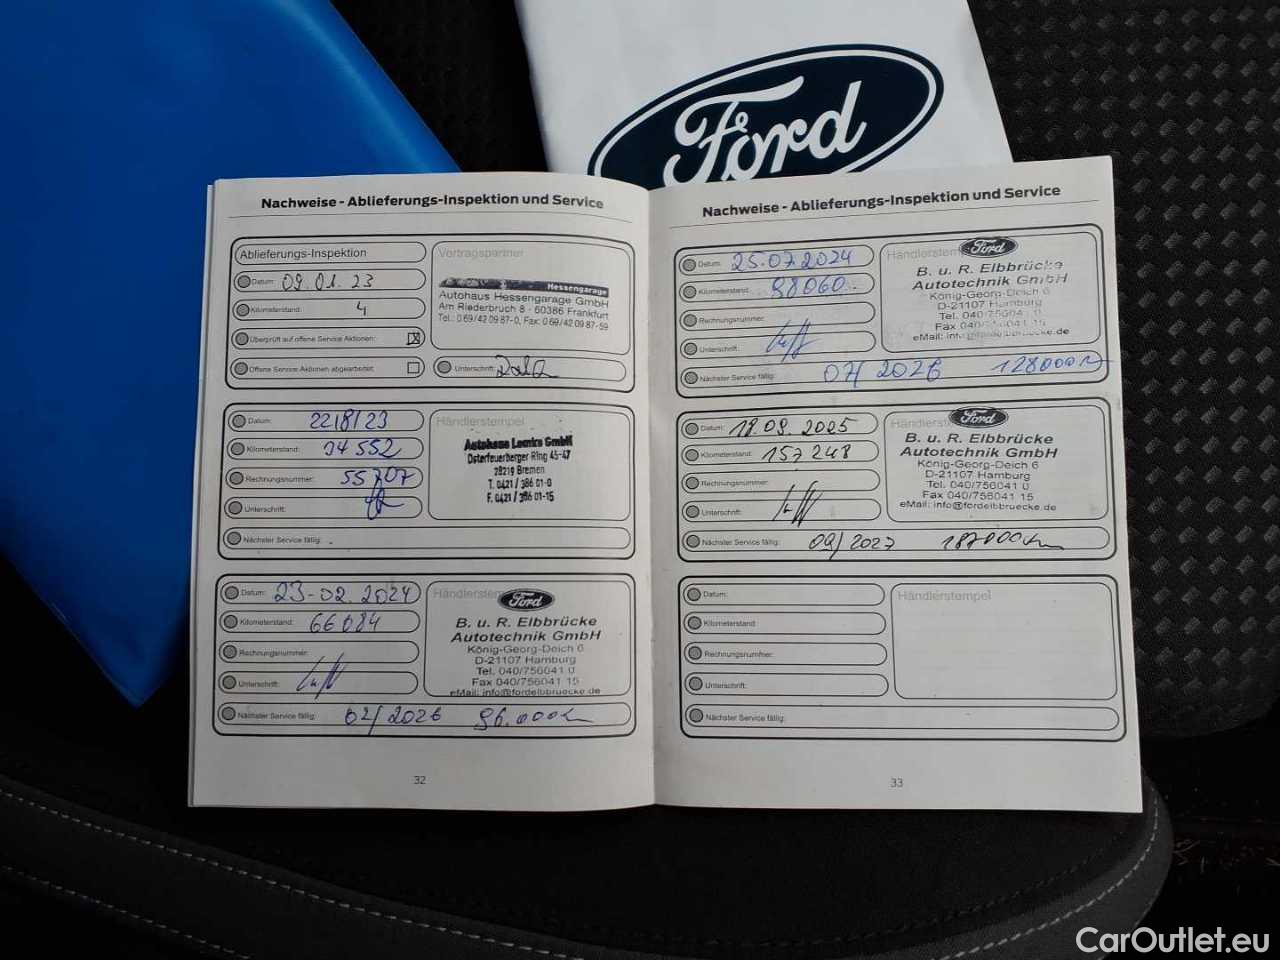 Ford
Nachweise - Ablieferungs-Inspektion und Service
Ablieferungs-Inspektion
Datum: 09.01.23
Kilometerstand: 4
Überprüft auf offene Service Aktionen: X
Offene Service Aktionen abgearbeitet:
Vertragspartner
Hessengarage
Autohaus Hessengarage GmbH
Am Riederbruch 8 · 60386 Frankfurt
Tel.: 069/42 09 87-0, Fax: 069/42 09 87-59
Unterschrift:
Datum: 22/8/23
Kilometerstand: 34 552
Rechnungsnummer: 55707
Unterschrift:
Nächster Service fällig:
Händlerstempel
Autohaus Lemke GmbH
Osterfeuerberger Ring 45-47
28219 Bremen
T. 0421 / 386 01-0
F. 0421 / 386 01-15
Datum: 23-02.2024
Kilometerstand: 66084
Rechnungsnummer:
Unterschrift:
Nächster Service fällig: 02/2026 96.000km
Händlerstempel
Ford
B. u. R. Elbbrücke
Autotechnik GmbH
König-Georg-Deich 6
D-21107 Hamburg
Tel. 040/756041 0
Fax 040/756041 15
eMail: info@fordelbbruecke.de
32
Nachweise - Ablieferungs-Inspektion und Service
Datum: 25.07.2024
Kilometerstand: 98060.
Rechnungsnummer:
Unterschrift:
Nächster Service fällig: 07/2026 128000km
Händlerstempel
Ford
B. u. R. Elbbrücke
Autotechnik GmbH
König-Georg-Deich 6
D-21107 Hamburg
Tel. 040/756041 0
Fax 040/756041 15
eMail: info@fordelbbruecke.de
Datum: 18.09.2025
Kilometerstand: 157248
Rechnungsnummer:
Unterschrift:
Nächster Service fällig: 09/2027 187000km
Händlerstempel
Ford
B. u. R. Elbbrücke
Autotechnik GmbH
König-Georg-Deich 6
D-21107 Hamburg
Tel. 040/756041 0
Fax 040/756041 15
eMail: info@fordelbbruecke.de
Datum:
Kilometerstand
Rechnungsnummer:
Unterschrift:
Nächster Service fällig:
Händlerstempel
33
CarOutlet.eu